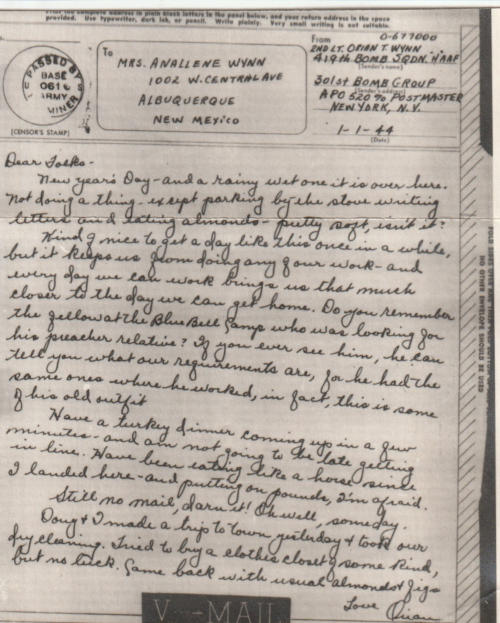 Print the complete address in plain block letters in the panel below, and your return address in the space
provided. Use typewriter, dark ink, or pencil. Write plainly. Very small writing is not suitable.
PASSED BY
BASE
ARMY
EXAMINER
(CENSOR'S STAMP)
To
MRS. ANALLENE WYNN
1002 W. CENTRAL AVE
ALBUQUERQUE
NEW MEXICO
From
O-677000
2ND LT. ORIAN T. WYNN
(Sender's name)
419th BOMB SQDN. HAAF
301st BOMB GROUP
(Sender's address)
APO 520 % POSTMASTER
NEW YORK, N.Y.
1-1-44
(Date)
Dear Folks -
New year's Day - and a rainy wet one it is over here.
Not doing a thing - except parking by the stove writing
letters and eating almonds - pretty soft, isn't it?
Kind of nice to get a day like this once in a while,
but it keeps us from doing any of our work - and
every day we can work brings us that much
closer to the day we can get home. Do you remember
the fellow at the Blue Bell Camp who was looking for
his preacher relative? If you ever see him, he can
tell you what our requirements are, for he had the
same ones where he worked, in fact, this is some
of his old outfit
Have a turkey dinner coming up in a few
minutes - and am not going to be late getting
in line. Have been eating like a horse since
I landed here - and putting on pounds, I'm afraid.
Still no mail, darn it! Oh well, someday.
Doug & I made a trip to town yesterday & took our
dry cleaning. Tried to buy a clothes closet of some kind,
but no luck. Came back with usual almonds & figs
Love Orian
V···—MAIL
FOLD
NO OTHER ENVELOPE SHOULD BE USED